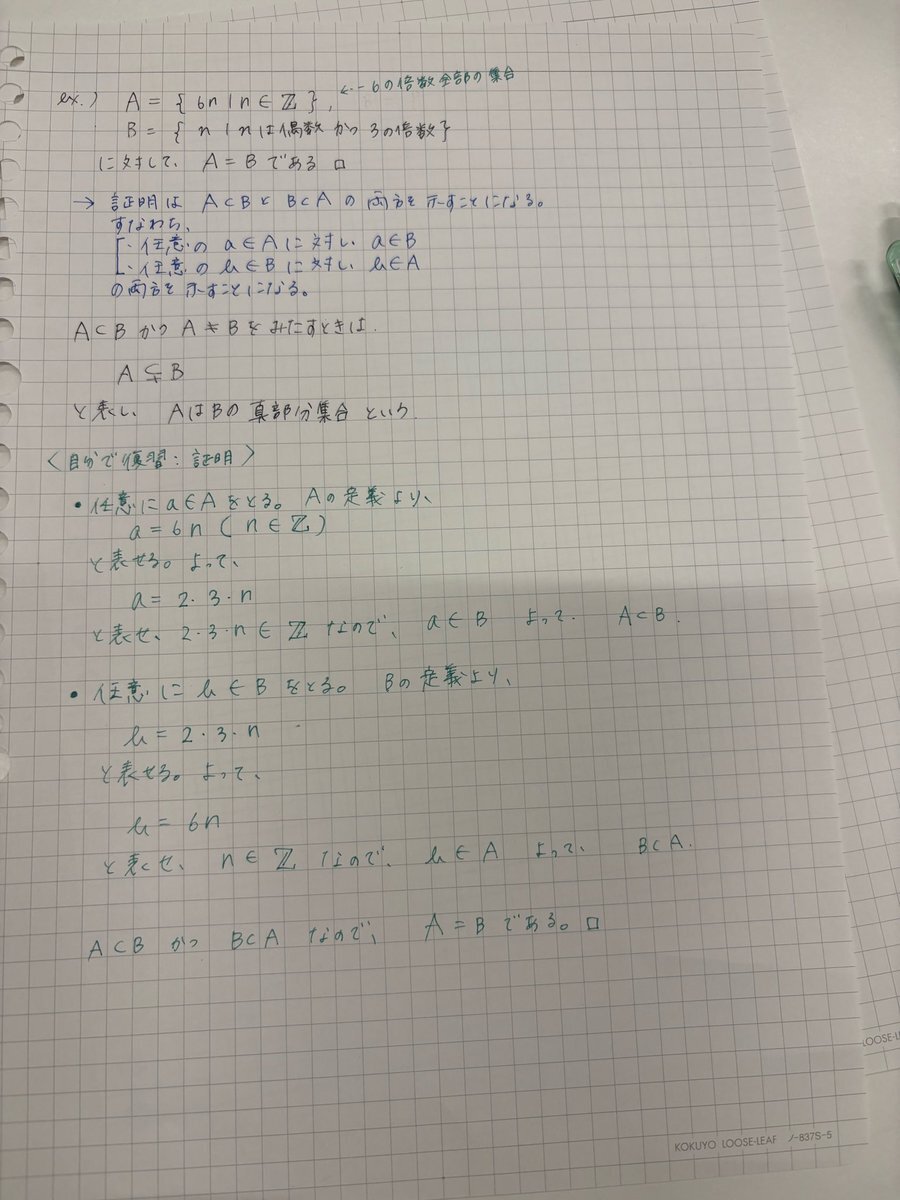 ex.) A = { 6n | n ∈ ℤ }, ←-- 6の倍数全部の集合
B = { n | nは偶数 かつ 3の倍数}
に対して、 A = B である □
→ 証明は A⊂B と B⊂A の両方を示すことになる。
すなわち、
・任意の a∈A に対し a∈B
・任意の b∈B に対し b∈A
の両方を示すことになる。
A⊂B かつ A≠B をみたすときは、
A⊊B
と表し、 AはBの 真部分集合 という.
〈自分で復習：証明〉
• 任意に a∈A をとる。 Aの定義より、
a = 6n ( n∈ℤ )
と表せる。よって、
a = 2・3・n
と表せ、 2・3・n ∈ ℤ なので、 a∈B よって、 A⊂B.
• 任意に b∈B をとる。 Bの定義より、
b = 2・3・n
と表せる。よって、
b = 6n
と表せ、 n∈ℤ なので、 b∈A よって、 B⊂A.
A⊂B かつ B⊂A なので、 A = B である。□
KOKUYO LOOSE-LEAF ノ-837S-5
LOOSE-L